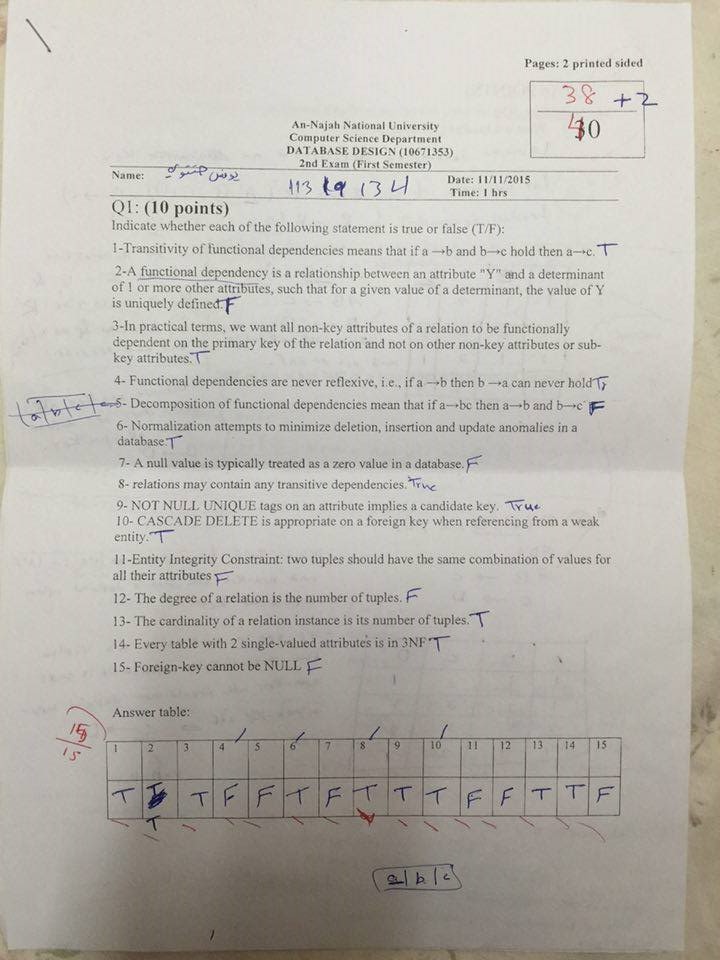 Pages: 2 printed sided
38 + 2
40
An-Najah National University
Computer Science Department
DATABASE DESIGN (10671353)
2nd Exam (First Semester)
Name: يونس
Date: 11/11/2015
Time: 1 hrs
Q1: (10 points)
Indicate whether each of the following statement is true or false (T/F):
1-Transitivity of functional dependencies means that if a →b and b→c hold then a→c. T
2-A functional dependency is a relationship between an attribute "Y" and a determinant
of 1 or more other attributes, such that for a given value of a determinant, the value of Y
is uniquely defined. F
3-In practical terms, we want all non-key attributes of a relation to be functionally
dependent on the primary key of the relation and not on other non-key attributes or sub-
key attributes. T
4- Functional dependencies are never reflexive, i.e., if a →b then b →a can never hold
a b c
5- Decomposition of functional dependencies mean that if a→bc then a→b and b→c F
6- Normalization attempts to minimize deletion, insertion and update anomalies in a
database. T
7- A null value is typically treated as a zero value in a database. F
8- relations may contain any transitive dependencies. True
9- NOT NULL UNIQUE tags on an attribute implies a candidate key. True
10- CASCADE DELETE is appropriate on a foreign key when referencing from a weak
entity. T
11-Entity Integrity Constraint: two tuples should have the same combination of values for
all their attributes F
12- The degree of a relation is the number of tuples. F
13- The cardinality of a relation instance is its number of tuples. T
14- Every table with 2 single-valued attributes is in 3NF T
15- Foreign-key cannot be NULL F
Answer table:
15
1 2 3 4 5 6 7 8 9 10 11 12 13 14 15
T T F F T F T T T F F T T F
T
a b c